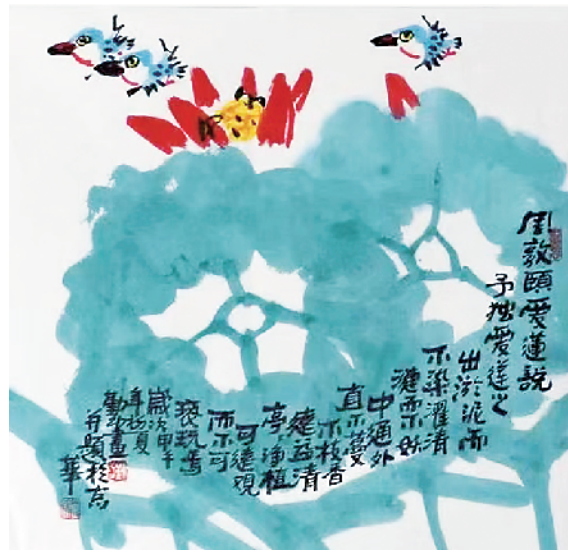 周敦頤爱蓮説
予独爱蓮之
出淤泥而
不染濯清
漣而不妖
中通外
直不蔓
不枝香
遠益清
亭淨植
可遠观
而不可
褻玩焉
歲次甲午
年初夏
画
并題於京
華